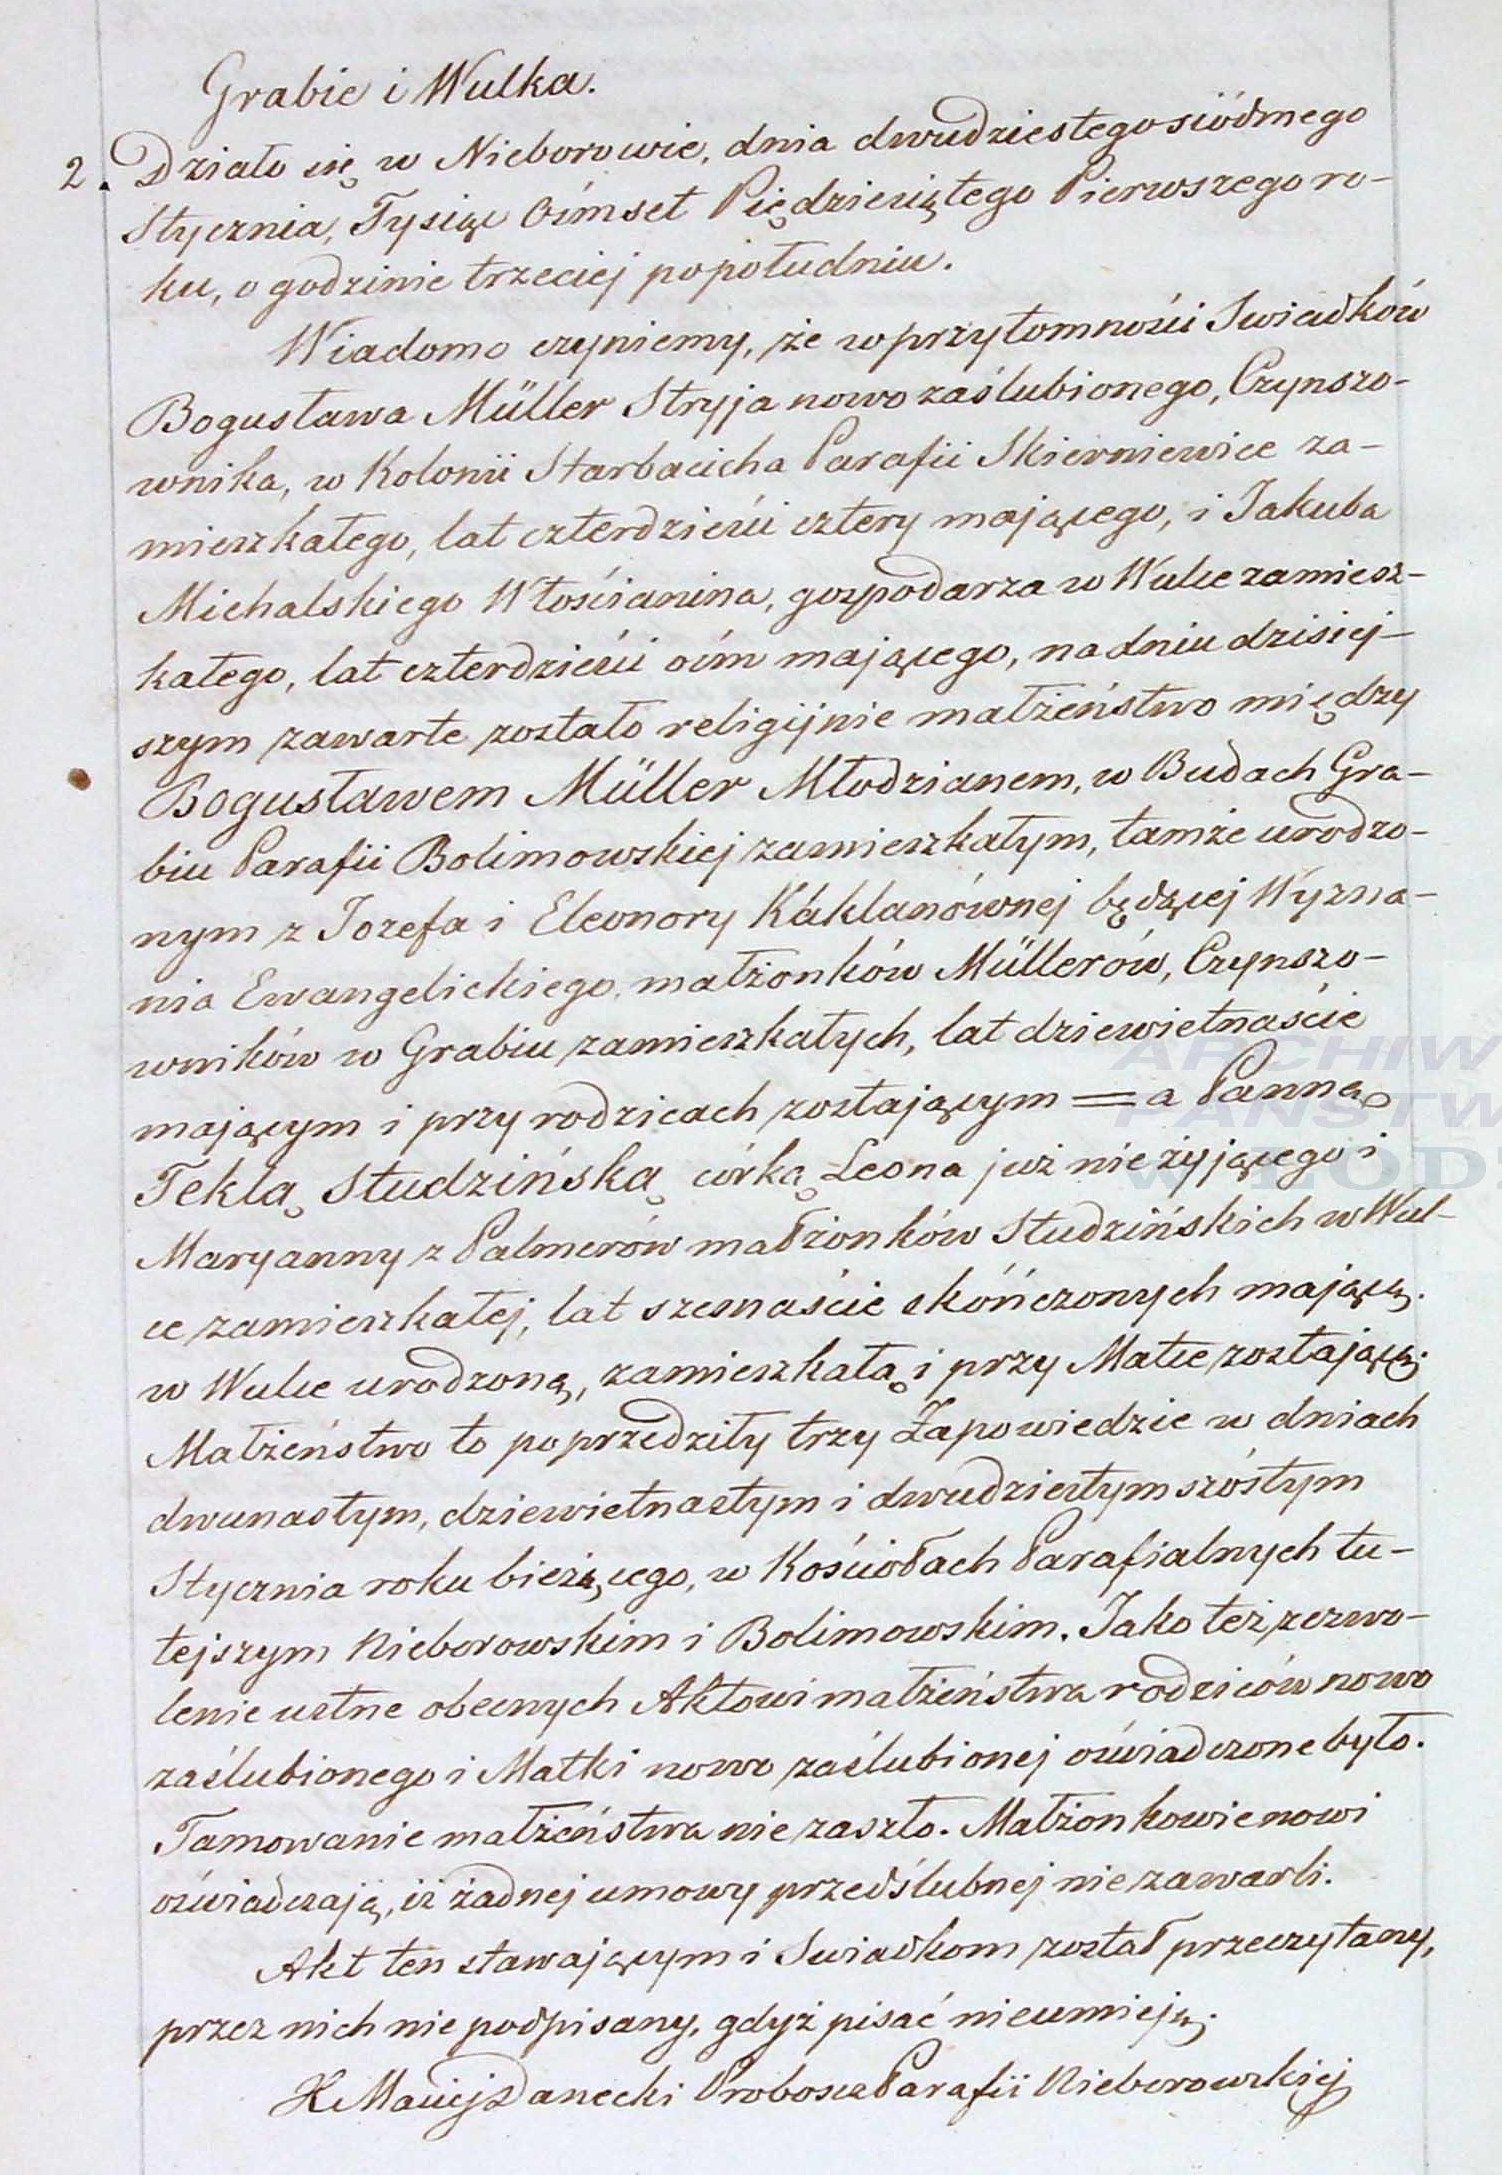 Grabie i Wulka.
2. Działo się w Nieborowie, dnia dwudziestego siódmego
Stycznia, Tysiąc Ośmset Piędziesiątego Pierwszego ro-
ku, o godzinie trzeciej popołudniu.
Wiadomo czyniemy, że w przytomności Swiadków
Bogusława Müller Stryja nowo zaślubionego, Czynszo-
wnika, w Kolonii Starbacicha Parafii Skierniewice za-
mieszkałego, lat czterdzieści cztery mającego, i Jakuba
Michalskiego Włościanina, gospodarza w Wulce zamiesz-
kałego, lat czterdzieści ośm mającego, na dniu dzisiej-
szym zawarte zostało religijnie małżeństwo między
Bogusławem Müller Młodzianem, w Budach Gra-
biu Parafii Bolimowskiej zamieszkałym, tamże urodzo-
nym z Jozefa i Eleonory Káklanównej będącej Wyzna-
nia Ewangelickiego małżonków Müllerów, Czynszo-
wników w Grabiu zamieszkałych, lat dziewietnaście
mającym i przy rodzicach zostającym = a Panną
Teklą Studzińską córką Leona już nie żyjącego i
Maryanny z Palmerów małżonków Studzińskich w Wul-
ce zamieszkałej, lat szesnaście skóńczonych mającą.
w Wulce urodzoną, zamieszkałą i przy Matce zostającą.
Małżeństwo to poprzedziły trzy Zapowiedzie w dniach
dwunastym, dziewietnastym i dwudziestym szóstym
Stycznia roku bieżącego, w Kościołach Parafialnych tu-
tejszym Nieborowskim i Bolimowskim. Jako też zezwo-
lenie ustne obecnych Aktowi małżeństwa rodziców nowo
zaślubionego i Matki nowo zaślubionej oświadczone było.
Tamowanie małżeństwa nie zaszło. Małżonkowie nowi
oświadczają, iż żadnej umowy przedślubnej nie zawarli.
Akt ten stawającym i Swiadkom został przeczytany,
przez nich nie podpisany, gdyż pisać nieumieją.
X Maciej Danecki Proboszcz Parafii Nieborowskiej
ARCHIW
PAŃSTW
W ŁODZ